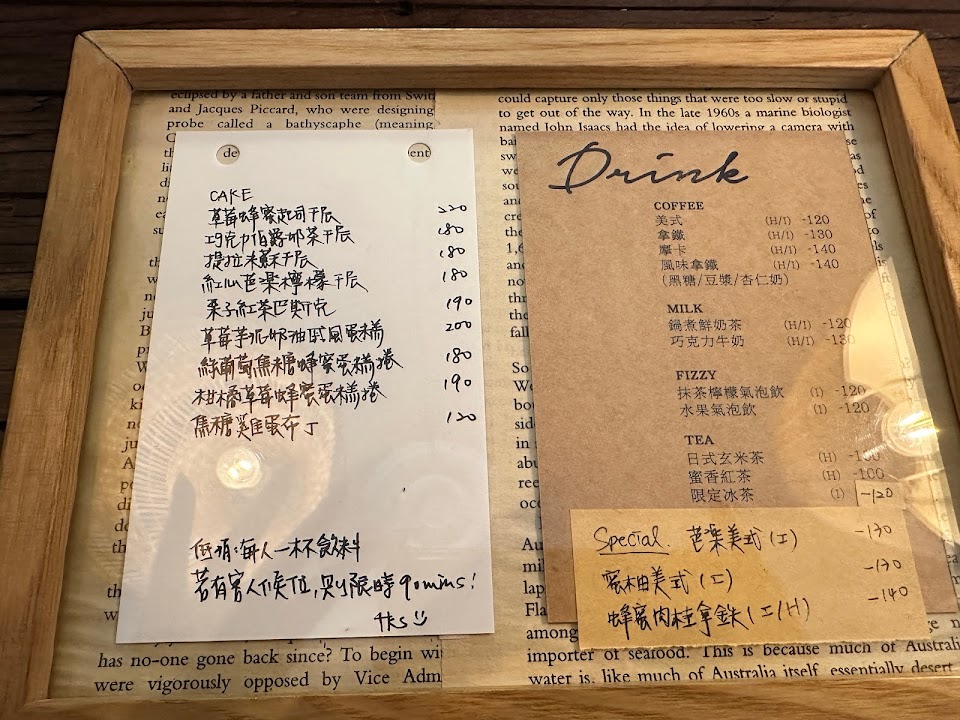 eclipsed by a father and son team from Swit
and Jacques Piccard, who were designing
probe called a bathyscaphe (meaning
de
ent
CAKE
草莓蜂蜜起司千层 220
巧克力伯爵奶茶千层 180
提拉米蘇千层 180
紅心芭樂檸檬千层 180
栗子紅茶巴斯克 190
草莓芋泥奶油戚風蛋糕 200
綠葡萄焦糖蜂蜜蛋糕捲 180
柑橘草莓蜂蜜蛋糕捲 190
焦糖雞蛋布丁 120
低消:每人一杯飲料
若有客人候位,則限時90mins!
tks
has no-one gone back since? To begin wi
were vigorously opposed by Vice Adm
could capture only those things that were too slow or stupid
to get out of the way. In the late 1960s a marine biologist
named John Isaacs had the idea of lowering a camera with
Drink
COFFEE
美式 (H/I) -120
拿鐵 (H/I) -130
摩卡 (H/I) -140
風味拿鐵 (H/I) -140
(黑糖/豆漿/杏仁奶)
MILK
鍋煮鮮奶茶 (H/I) -120
巧克力牛奶 (H/I) -130
FIZZY
抹茶檸檬氣泡飲 (I) -120
水果氣泡飲 (I) -120
TEA
日式玄米茶 (H) -100
蜜香紅茶 (H) -100
限定冰茶 (I) -120
Special. 芭樂美式(I) -130
蜜柚美式(I) -130
蜂蜜肉桂拿鉄(I/H) -140
among
importer of seafood. This is because much of Australi
water is, like much of Australia itself, essentially desert